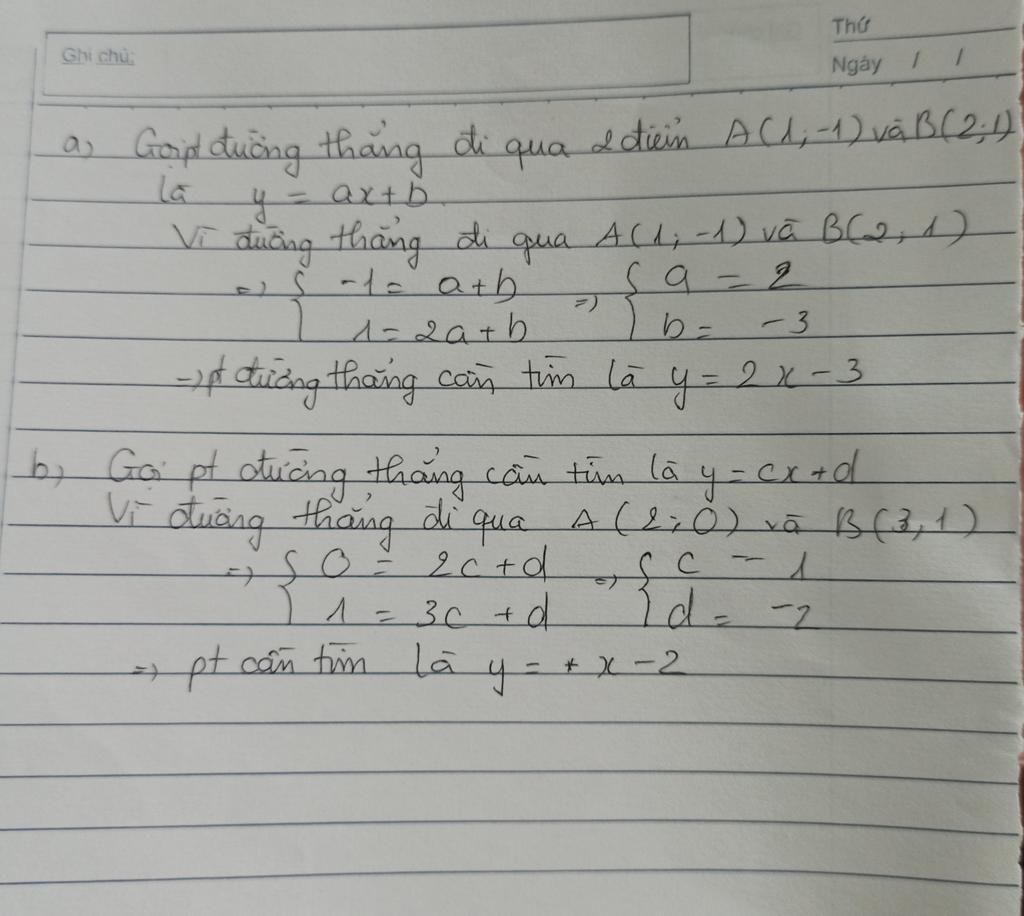 Ghi chú:
Thứ
Ngày / /
a) Gọi pt đường thẳng đi qua 2 điểm A(1;-1) và B(2;1)
là y = ax+b
Vì đường thẳng đi qua A(1;-1) và B(2;1)
=> { -1 = a+b => { a = 2
1 = 2a+b b = -3
=> pt đường thẳng cần tìm là y = 2x-3
b) Gọi pt đường thẳng cần tìm là y = cx+d
Vì đường thẳng đi qua A(2;0) và B(3,1)
=> { 0 = 2c+d => { c = 1
1 = 3c+d d = -2
=> pt cần tìm là y = x-2